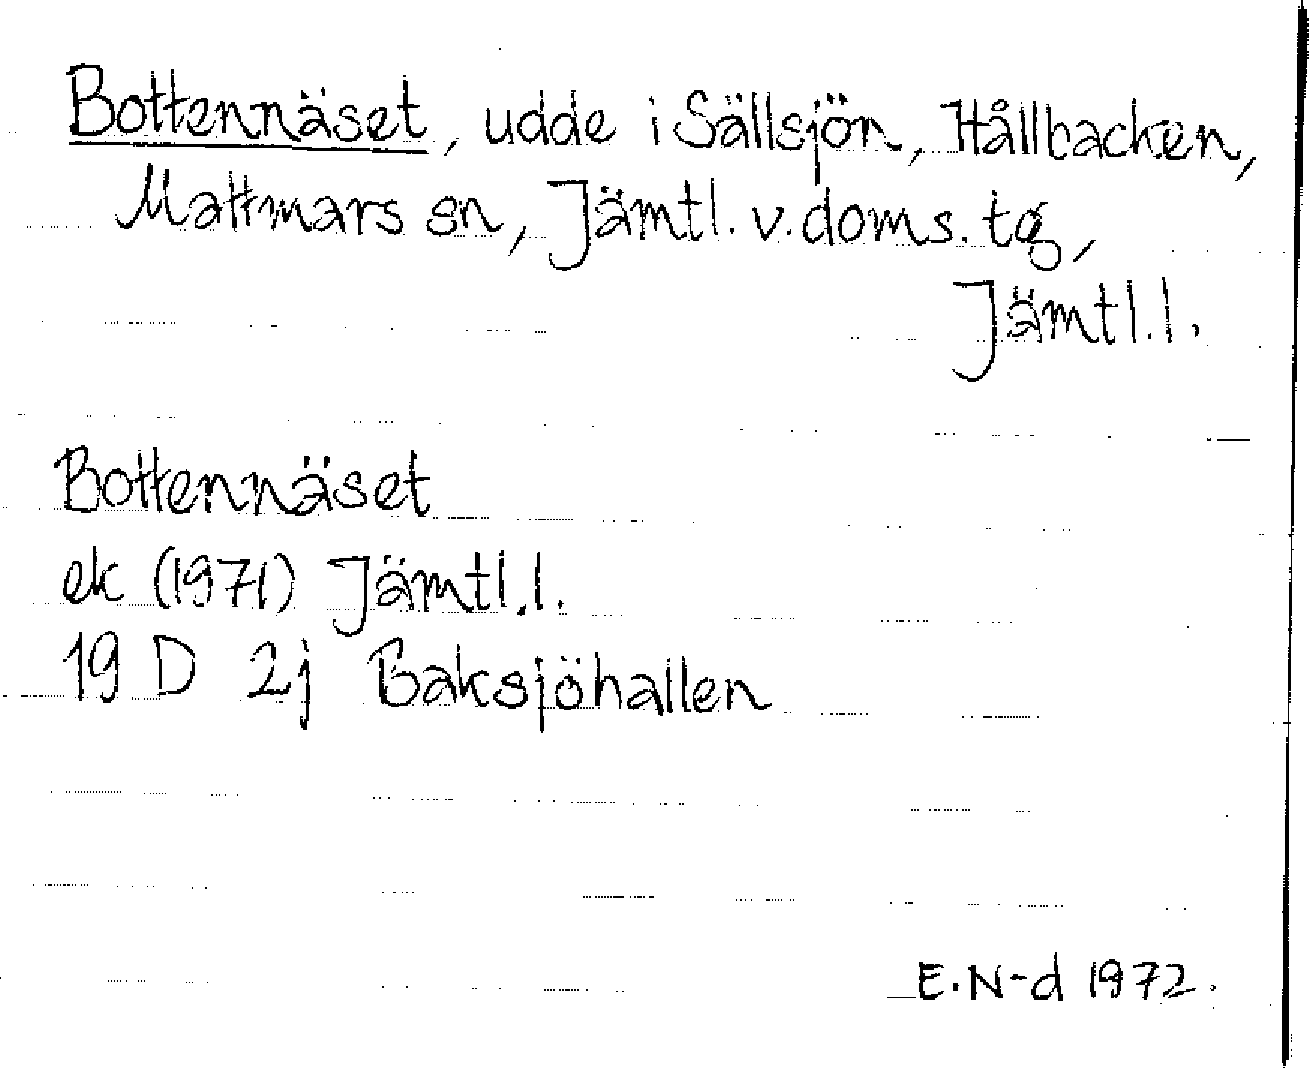 Bottennäset, udde i Sällsjön, Hållbacken,
Mattmars sn, Jämtl. v. doms. tg,
Jämtl. l.
Bottennäset
ek (1971) Jämtl. l.
19 D 2j Baksjöhallen
E. N-d 1972.